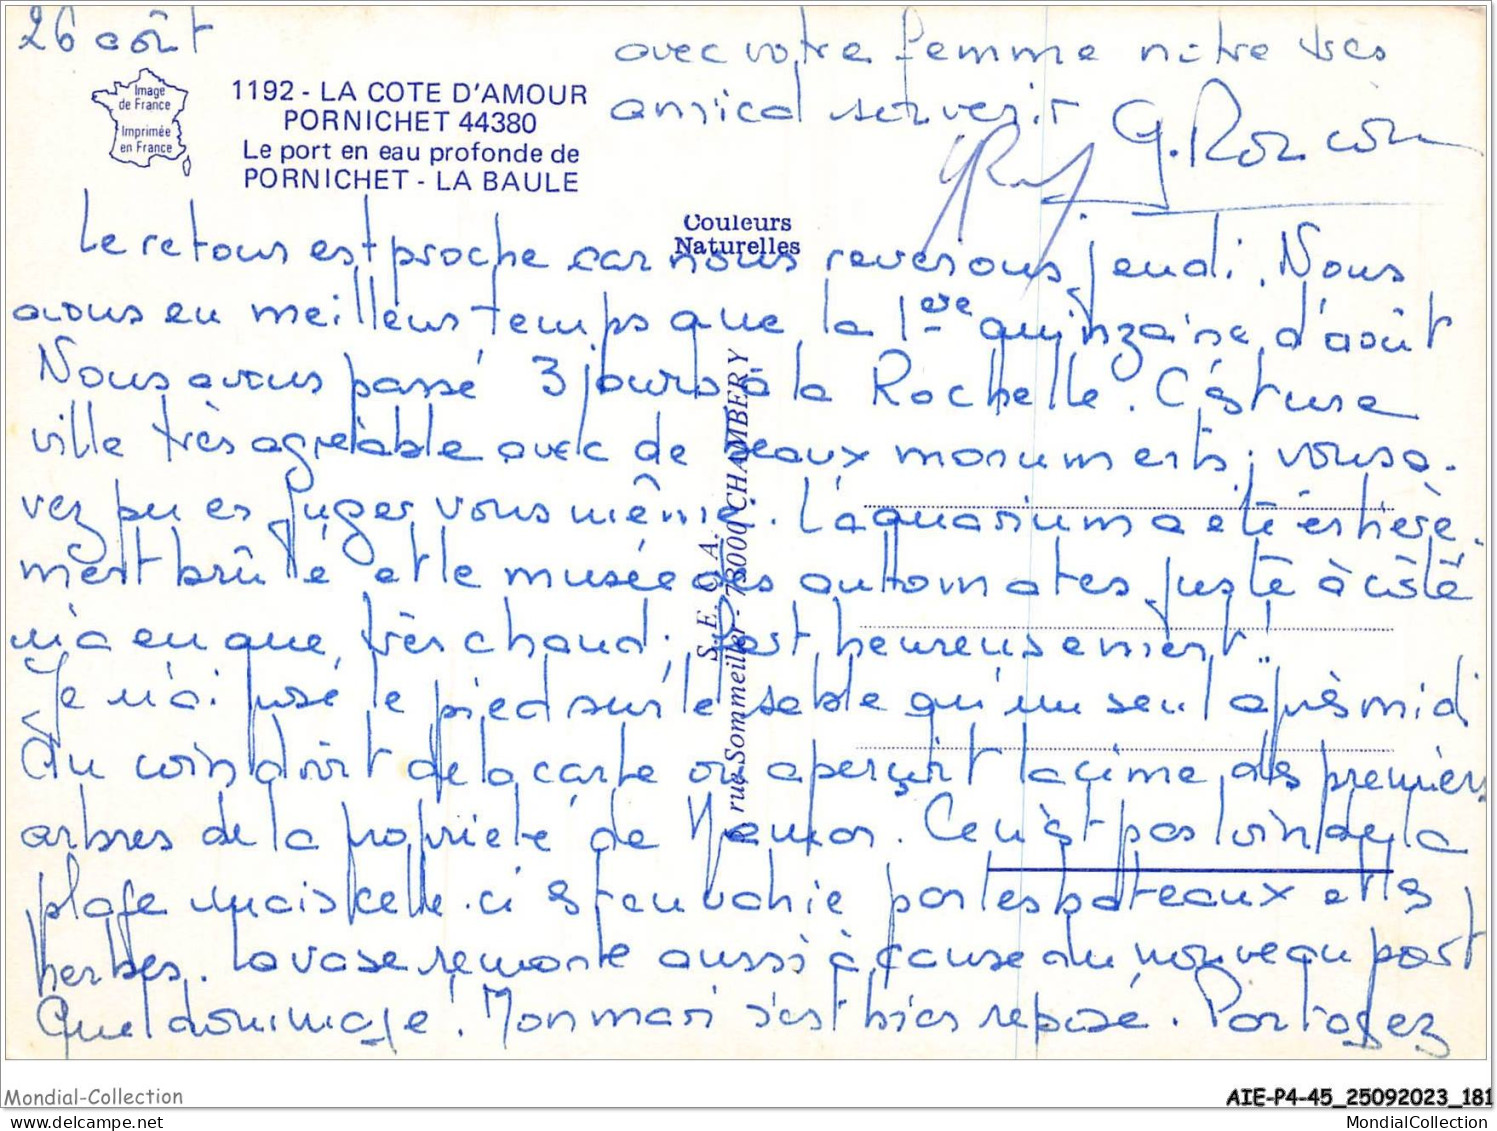 26 août
avec votre femme notre très
amical souvenir
Image
de France
Imprimée
en France
1192 - LA COTE D'AMOUR
PORNICHET 44380
Le port en eau profonde de
PORNICHET - LA BAULE
Couleurs
Naturelles
S. E. O. A.
rue Sommeiller - 73000 CHAMBERY
Le retour est proche car nous reverrons jeudi. Nous
avons eu meilleurs temps que la 1ère quinzaine d'août
Nous avons passé 3 jours à la Rochelle. C'est une
ville très agréable avec de beaux monuments ; vous a-
vez pu en juger vous même. L'aquarium a été entière-
ment brûlé et le musée des automates juste à côté
n'a eu que très chaud ; heureusement !
Je n'ai posé le pied sur le sable qu'un seul après midi
Au coin droit de la carte on aperçoit la cime des premiers
arbres de la propriété de Ce n'est pas loin de la
plage mais celle-ci est envahie par les bateaux et les
herbes. La vase remonte aussi à cause du nouveau port
Quel dommage ! Mon mari s'est bien reposé. Partagez
Mondial-Collection
AIE-P4-45_25092023_181
MondialCollection